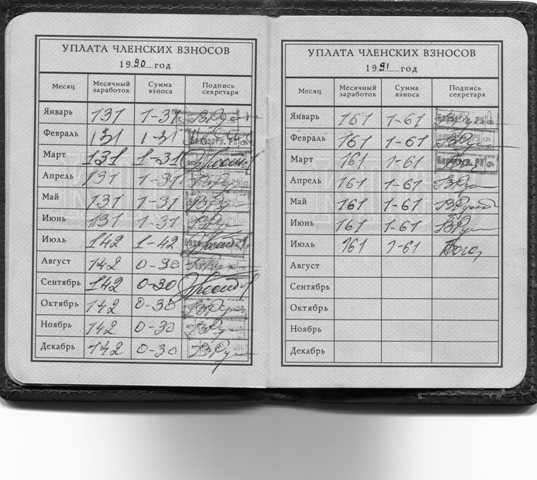 УПЛАТА ЧЛЕНСКИХ ВЗНОСОВ
1990 год
Месяц Месячный заработок Сумма взноса Подпись секретаря
Январь 131 1-31
Февраль 131 1-31
Март 131 1-31
Апрель 131 1-31
Май 131 1-31
Июнь 131 1-31
Июль 142 1-42
Август 142 0-30
Сентябрь 142 0-30
Октябрь 142 0-30
Ноябрь 142 0-30
Декабрь 142 0-30
УПЛАТА ЧЛЕНСКИХ ВЗНОСОВ
1991 год
Месяц Месячный заработок Сумма взноса Подпись секретаря
Январь 161 1-61
Февраль 161 1-61
Март 161 1-61
Апрель 161 1-61
Май 161 1-61
Июнь 161 1-61
Июль 161 1-61
Август
Сентябрь
Октябрь
Ноябрь
Декабрь